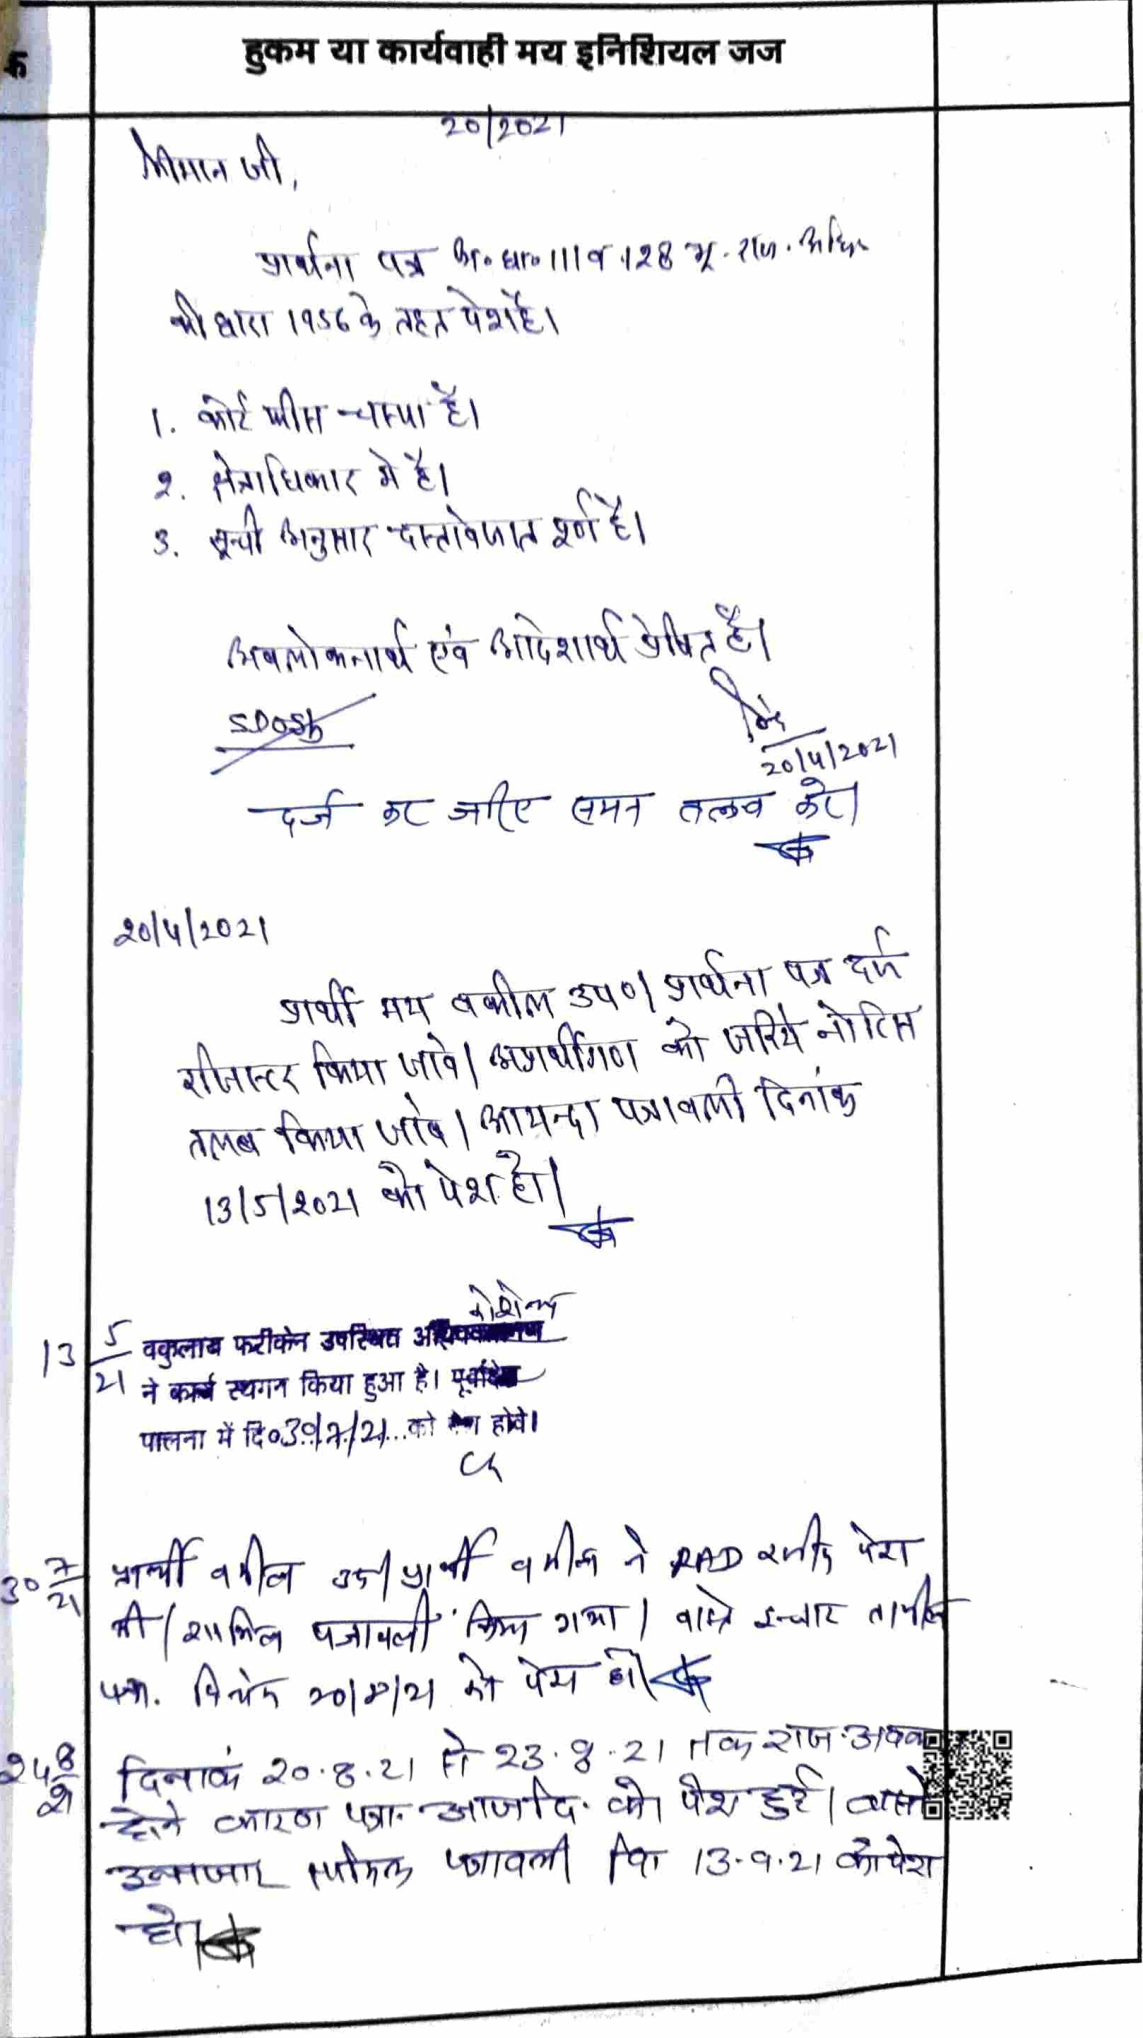 हुकम या कार्यवाही मय इनिशियल जज
20/2021
श्रीमान जी,
प्रार्थना पत्र अ० धा० 111 व 128 भू. राज. अधि
की धारा 1956 के तहत पेश है।
1. कोर्ट फीस चस्पा है।
2. क्षेत्राधिकार मे है।
3. सूची अनुसार दस्तावेजात पूर्ण है।
अवलोकनार्थ एवं आदेशार्थ प्रेषित है।
20/4/2021
दर्ज कर जरिए समन तलब करे।
20/4/2021
प्रार्थी मय वकील उप०। प्रार्थना पत्र दर्ज
रजिस्टर किया जावे। अप्रार्थीगण को जरिये नोटिस
तलब किया जावे। आयन्दा पत्रावली दिनांक
13/5/2021 को पेश हो।
13 5/21 वकुलाय फरीकेन उपस्थित
ने कार्य स्थगन किया हुआ है।
पालना में दि० 30/7/21 को होवे।
30 7/21 प्रार्थी वकील उप। प्रार्थी वकील ने RAD रसीद पेश
की। शामिल पत्रावली किया गया। वास्ते इन्तजार तामील
पत्रा. दिनांक 20/8/21 को पेश हो।
24 8/21 दिनाकं 20.8.21 से 23.8.21 तक राज. अवका
होने कारण पत्रा. आज दि. को पेश हुई। वास्ते
इन्तजार तामिल पत्रावली दि 13.9.21 को पेश
हो।